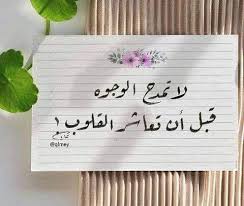 لا تمدح الوجوه
قبل أن تعاشر القلوب !
@qlmey